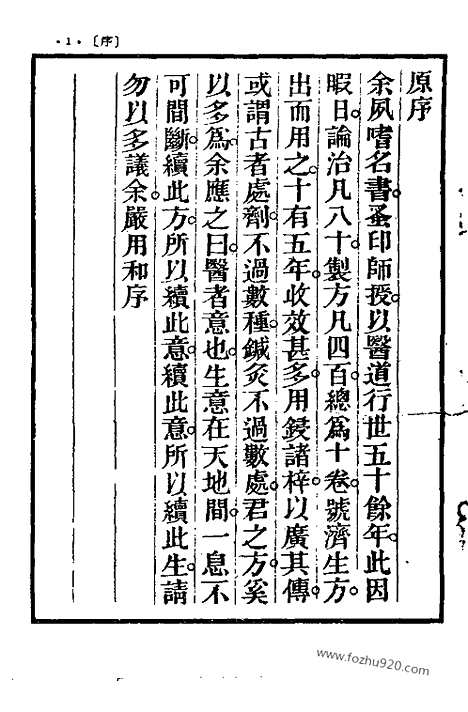 ·1·〔序〕
原序
余夙嗜名書。蚤印師授。以醫道行世五十餘年。此因
暇日。論治凡八十。製方凡四百。總爲十卷。號濟生方。
出而用之。十有五年。收效甚多。用鋟諸梓。以廣其傳。
或謂古者處劑。不過數種。鍼灸不過數處。君之方。奚
以多爲。余應之曰。醫者意也。生意在天地間。一息不
可間斷。續此方。所以續此意。續此意。所以續此生。請
勿以多議余。嚴用和序
www.fozhu920.com